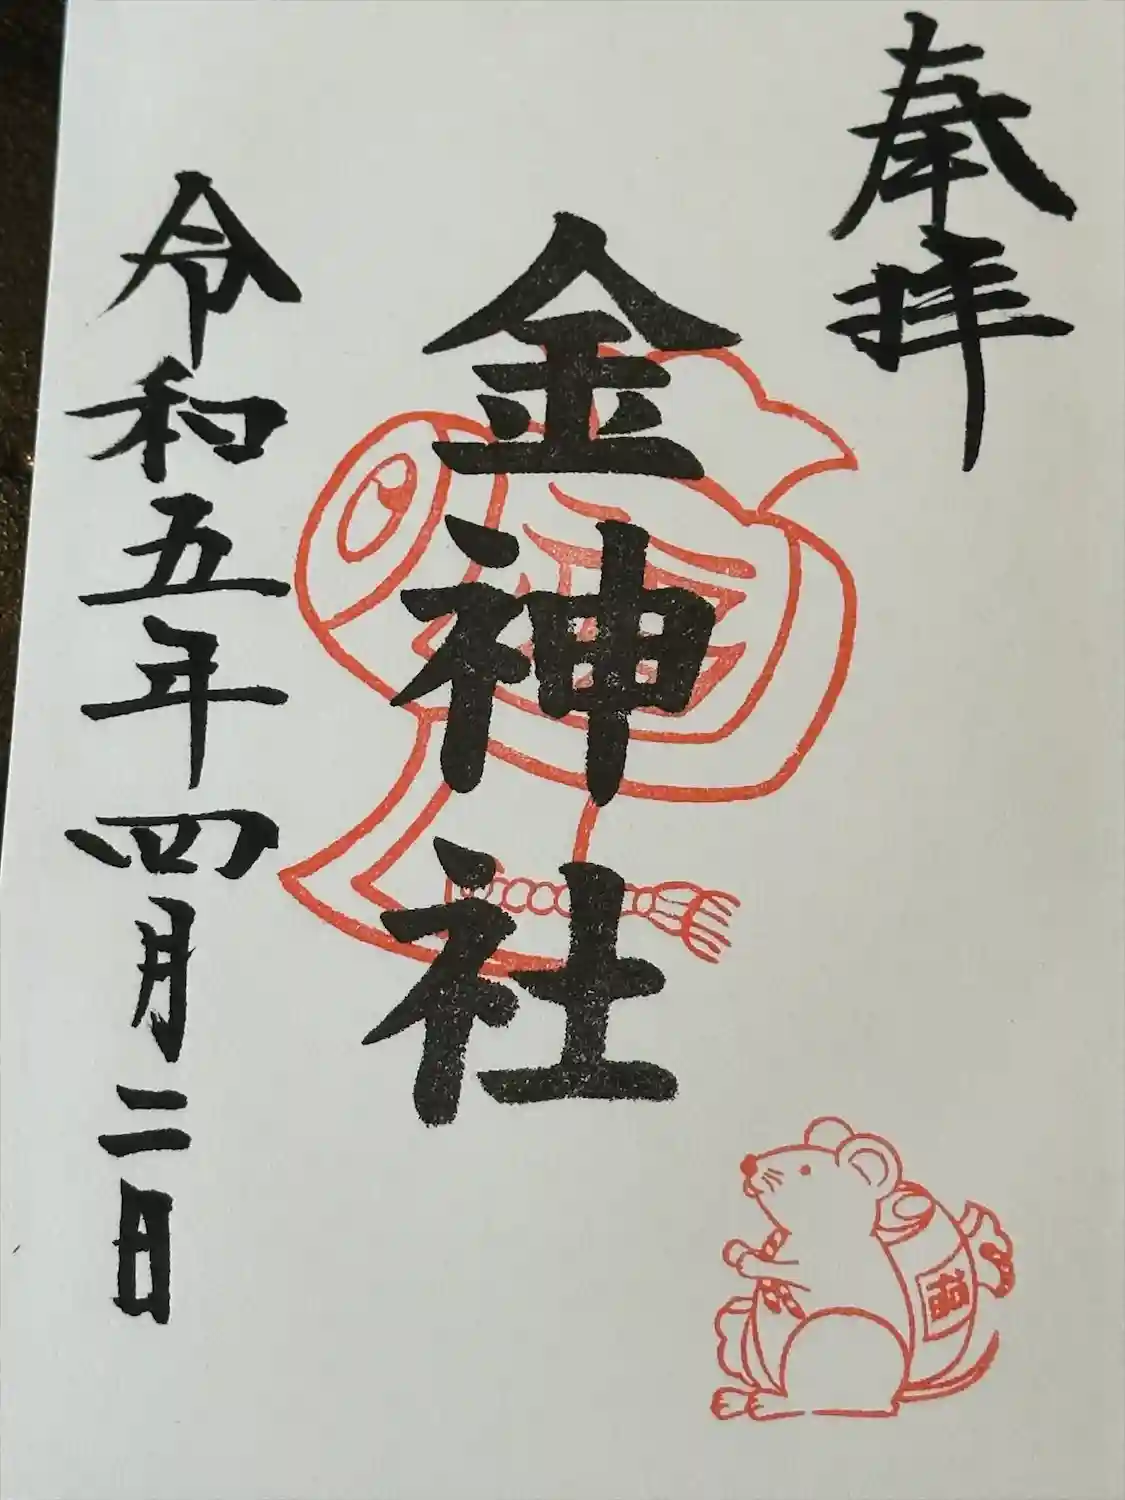 奉拝
金神社
令和五年四月二日
福